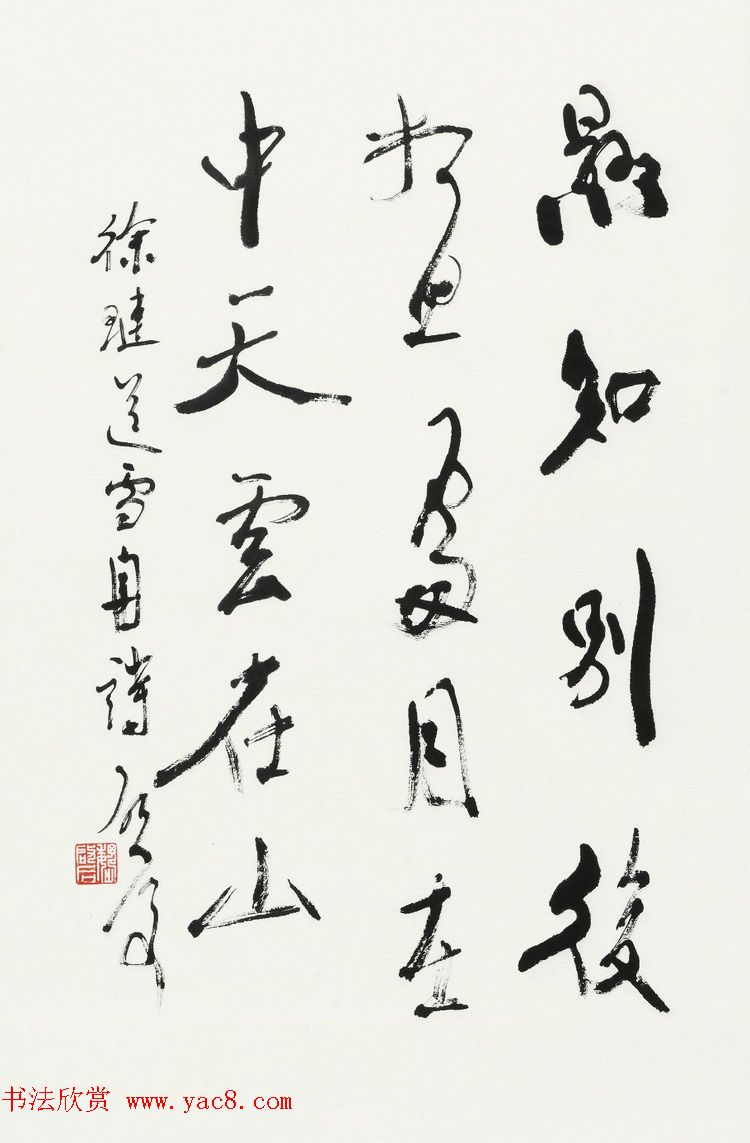 懸知別後
相思處月在
中天雲在山
徐璉送雪舟詩
书法欣赏 www.yac8.com